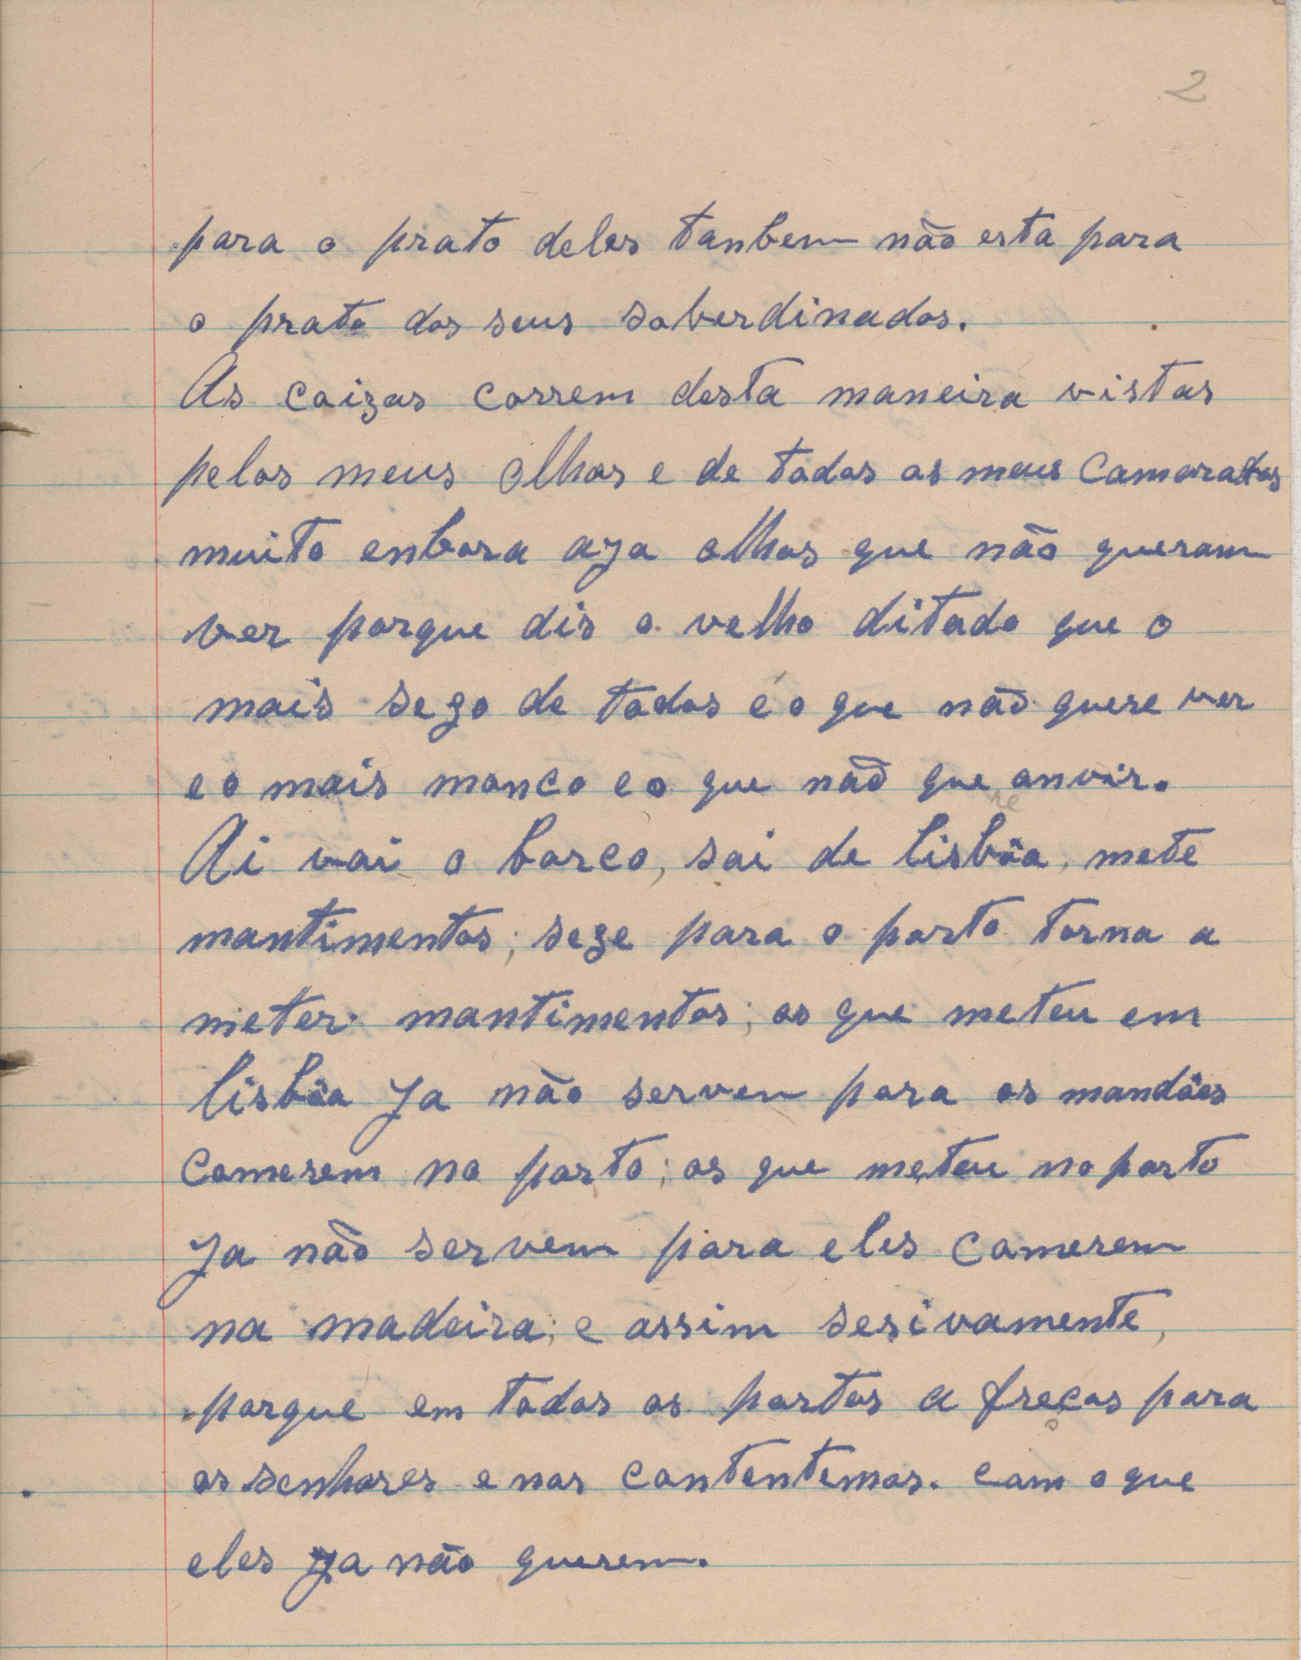 2
para o prato deles tanbem não esta para
o prato dos seus soberdinados.
As coizas correm desta maneira vistas
pelos meus olhos e de todos os meus camaradas
muito enbora aja olhos que não queram
ver porque dis o velho ditado que o
mais sego de todos é o que não quere ver
e o mais monco e o que não que re onvir.
Ai vai o barco, sai de lisbôa, mete
mantimentos; sege para o porto torna a
meter mantimentos; os que meteu em
lisbôa Ja não serven para os mandões
comerem no porto; os que meteu no porto
Ja não servem para eles comerem
na madeira; e assim sesivamente,
porque em todos os portos a frecos para
os senhores e nos contentemos. com o que
eles Ja não querem.